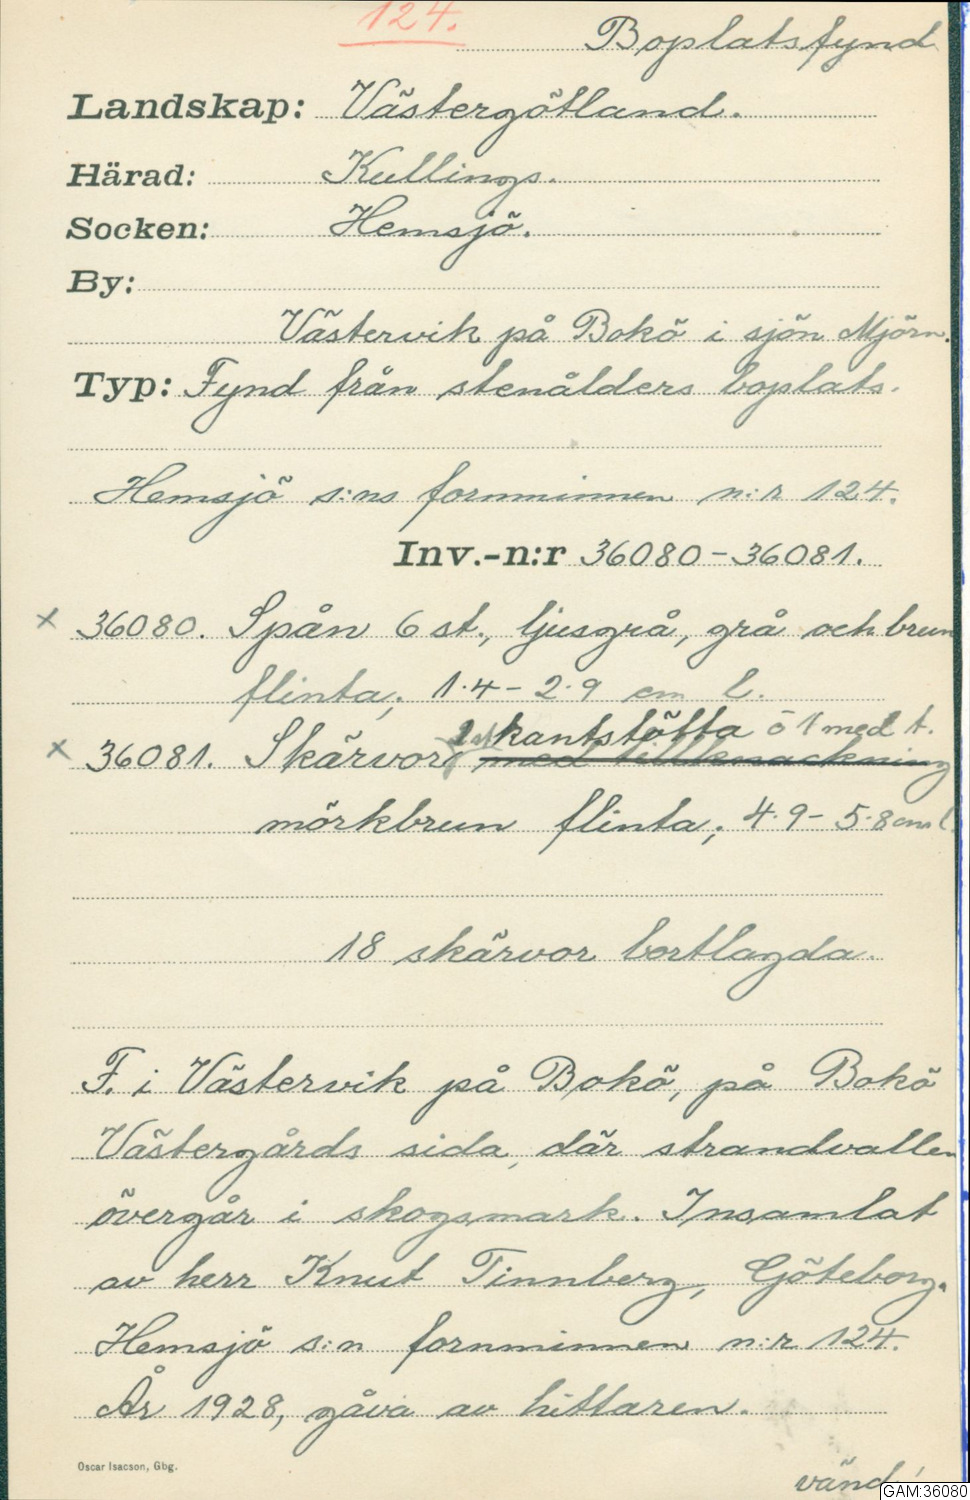 124.
Boplatsfynd
Landskap: Västergötland.
Härad: Kullings.
Socken: Hemsjö.
By:
Västervik på Bokö i sjön Mjörn.
Typ: Fynd från stenålders boplats.
Hemsjö s:ns fornminnen n:r 124.
Inv.-n:r 36080-36081.
x 36080. Spån 6 st., ljusgrå, grå och brun
flinta; 1.4-2.9 cm l.
kantstötta o 1 med t.
x 36081. Skärvor med tillknackning
mörkbrun flinta; 4.9-5.8 cm l.
18 skärvor bortlagda.
F. i Västervik på Bokö, på Bokö
Västergårds sida, där strandvallen
övergår i skogsmark. Insamlat
av herr Knut Tinnberg, Göteborg.
Hemsjö s:n fornminnen n:r 124.
År 1928, gåva av hittaren.
Oscar Isacson, Gbg.
vänd!
GAM:36080